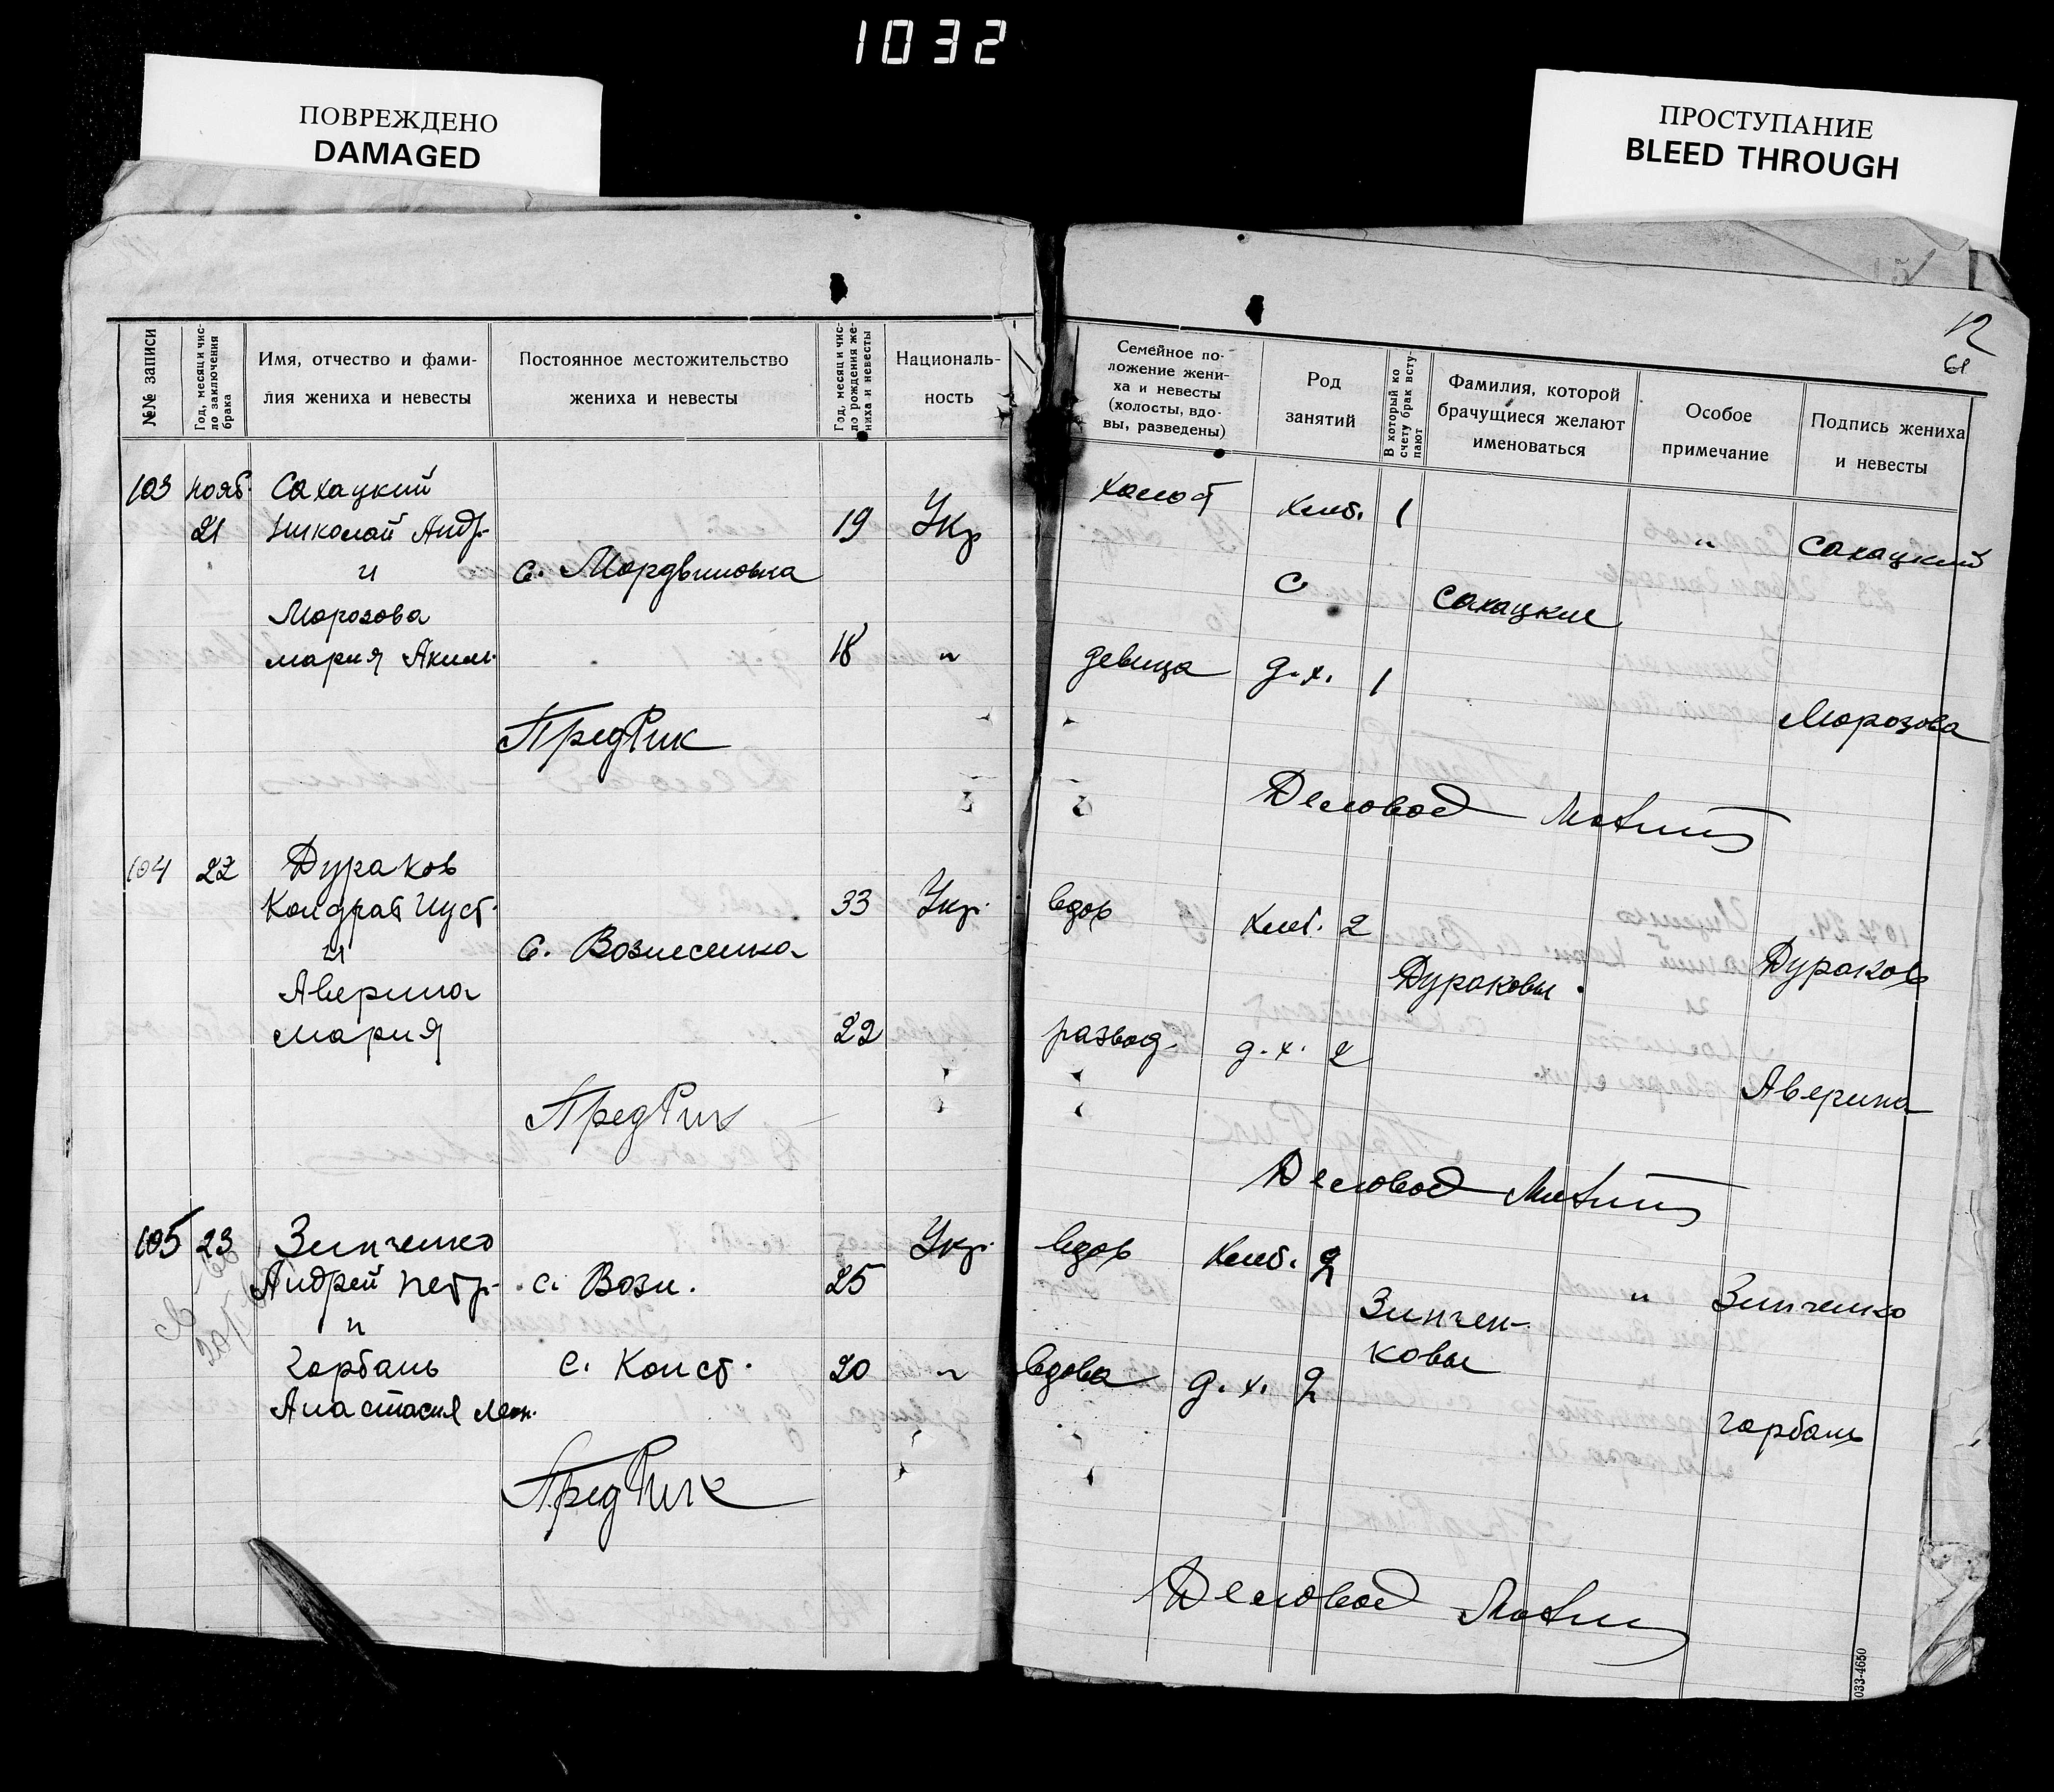 1032
ПОВРЕЖДЕНО
DAMAGED
ПРОСТУПАНИЕ
BLEED THROUGH
12
61
№№ записи
Год, месяц и чис-
ло заключения
брака
Имя, отчество и фами-
лия жениха и невесты
Постоянное местожительство
жениха и невесты
Год, месяц и чис-
ло рождения же-
ниха и невесты
Националь-
ность
Семейное по-
ложение жени-
ха и невесты
(холосты, вдо-
вы, разведены)
Род
занятий
В который ко
счету брак всту-
пают
Фамилия, которой
брачущиеся желают
именоваться
Особое
примечание
Подпись жениха
и невесты
103 нояб. Сахацкий холост хлеб. 1
21 Николай Андр. 19 Укр " Сахацкий
и с. Мордвиновка с
Морозова Сахацкие
Мария Аким. 18 " девица д.х. 1
Морозова
ПредРик
Деловод
104 22 Дураков
Кондрат Иуст. 33 Укр. вдов хлеб. 2
и с. Вознесенка Дураков
Аверина Дураковы
Мария 22 развод. д.х. 2
Аверина
ПредРик
Деловод
105 23 Зинченко Укр. вдов хлеб. 2
Андрей Петр. с. Возн. 25 " Зинченко
и Зинчен-
ковы
Горбань с. Конст. 20 " вдова д.х. 2
Анастасия Леон. Горбань
ПредРик
Деловод
033-4650